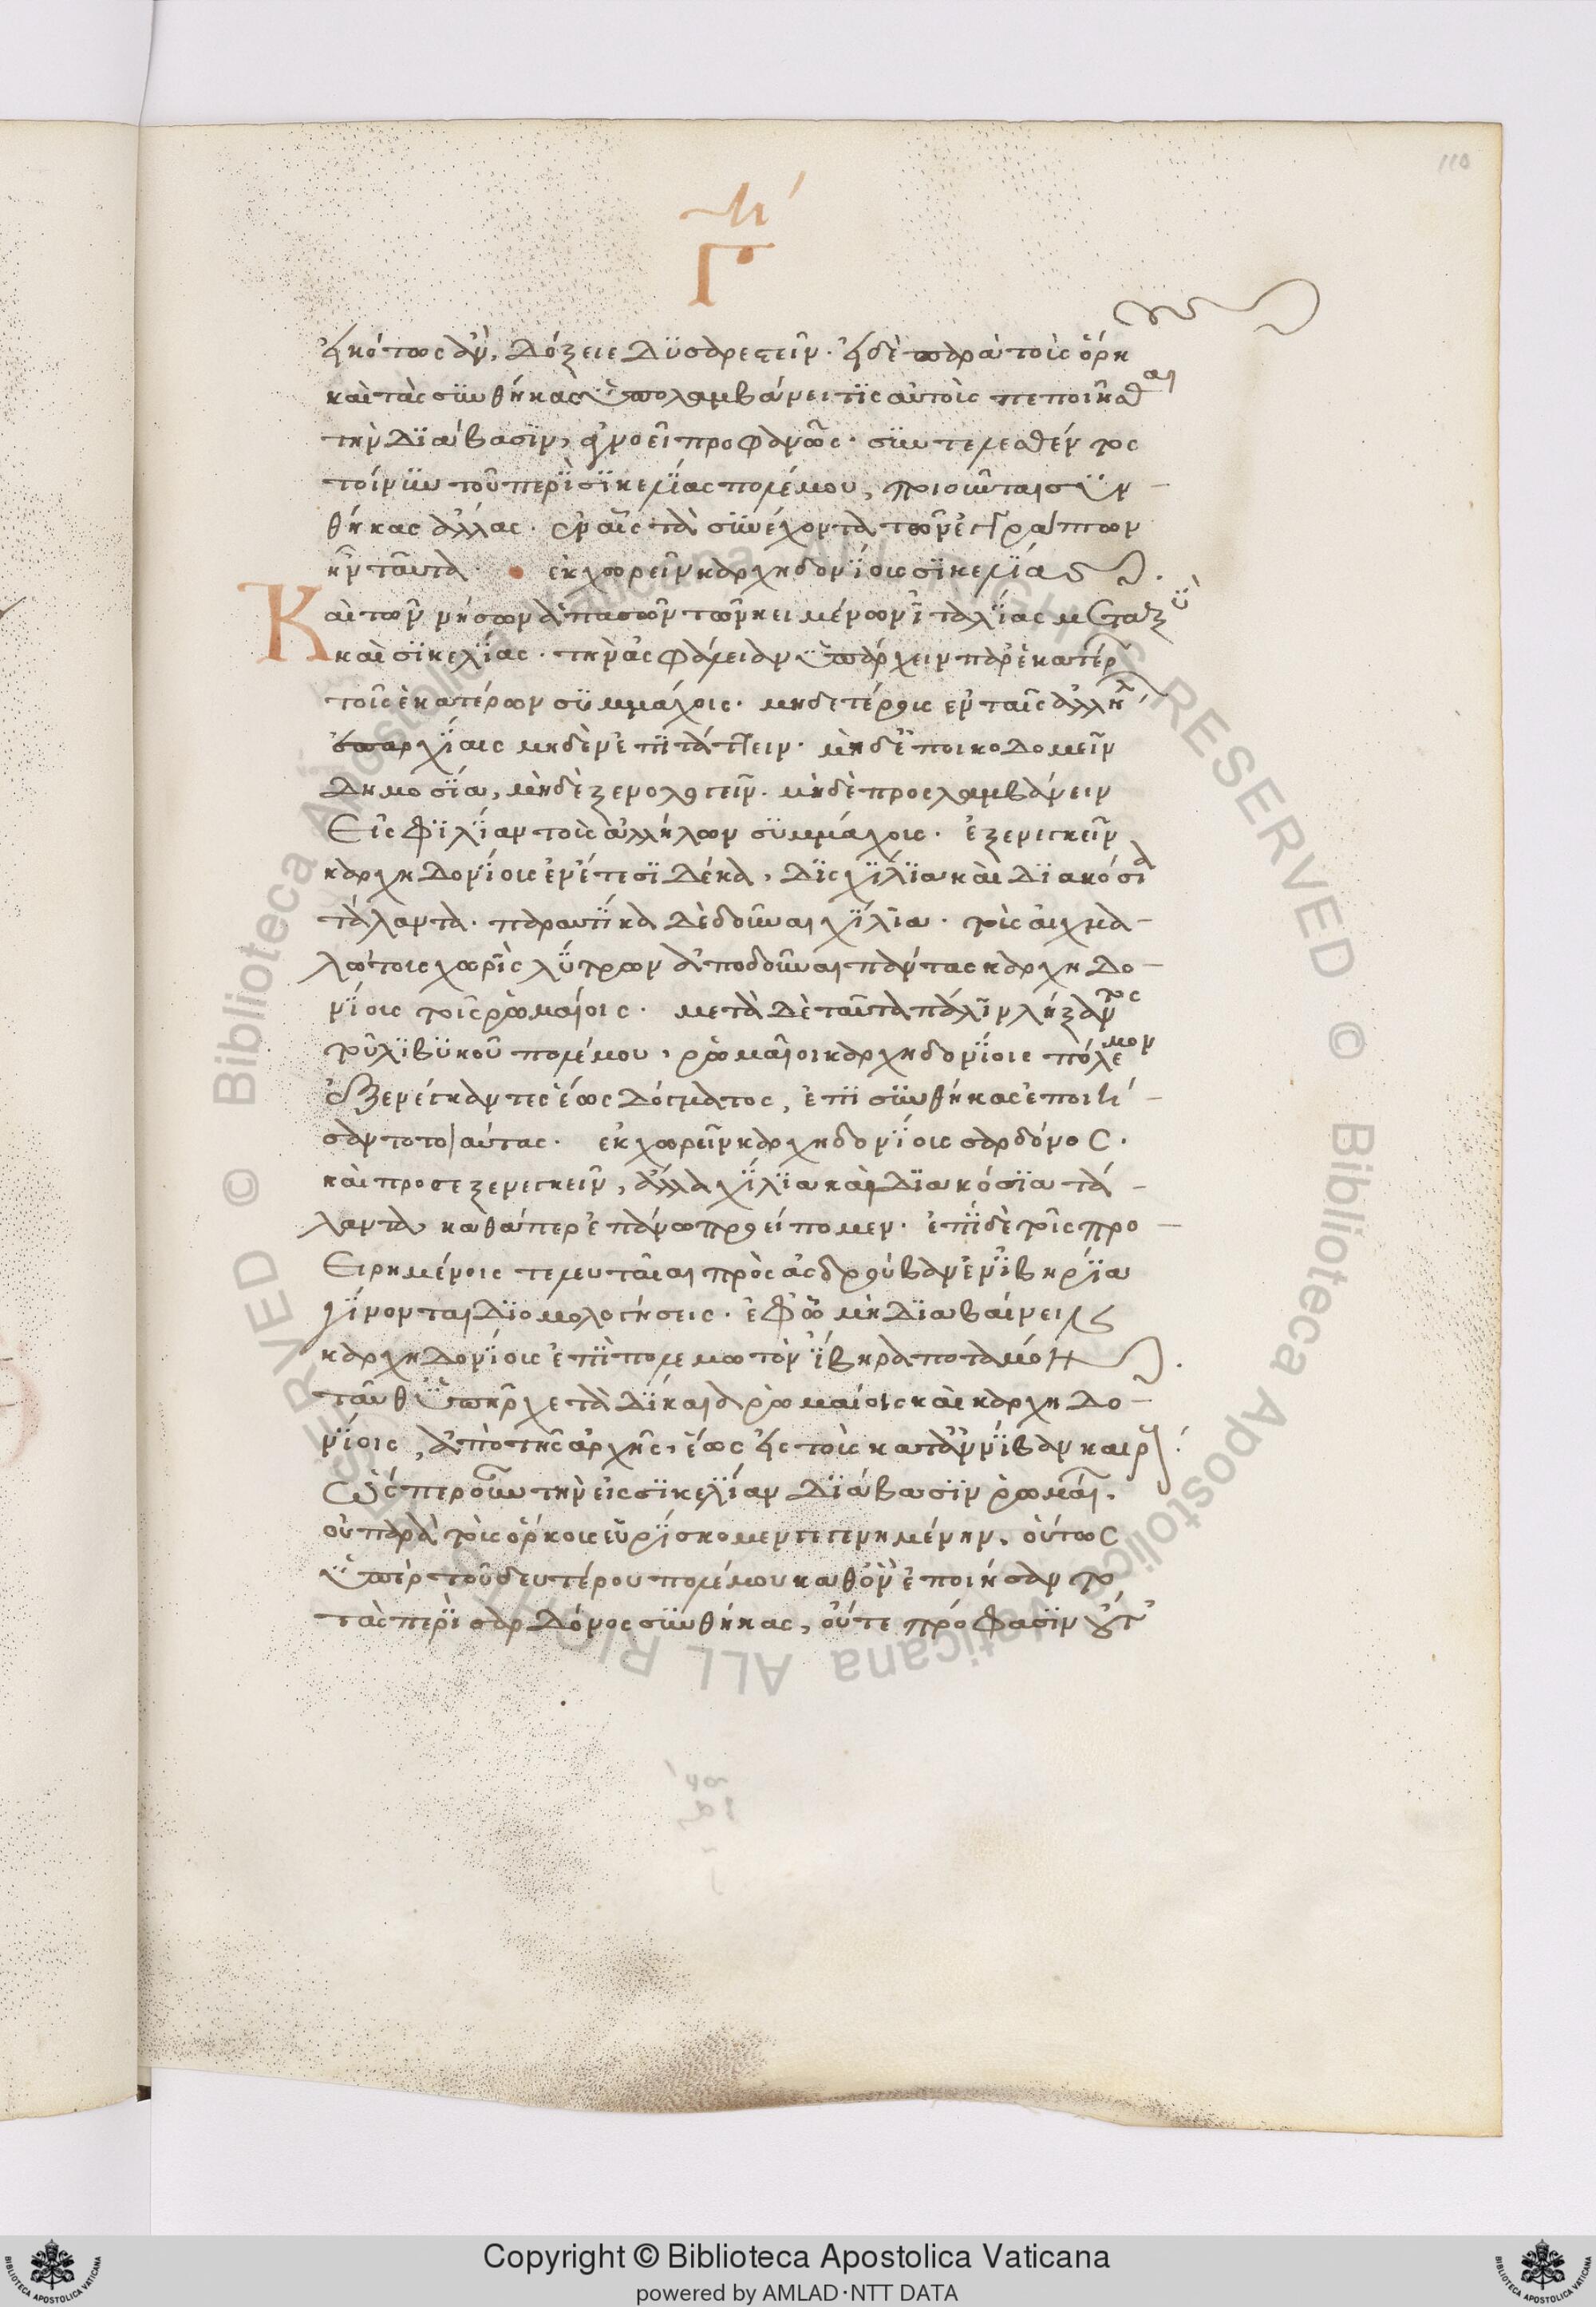 110
Γ
εἰκότως ἂν, δόξειε δυσαρεστεῖν. εἰ δὲ παρὰ τοὺς ὅρκ
καὶ τὰς συνθήκας ὑπολαμβάνει τις αὐτοῖς πεποιῆσθαι
τὴν διάβασιν, ἀγνοεῖ προφανῶς. συντελεσθέντος
τοίνυν τοῦ περὶ σικελίας πολέμου, ποιοῦνται συν
θήκας ἄλλας. ἐν αἷς τὰ συνέχοντα τῶν ἐγγράπτων
ἦν ταῦτα. ἐκχωρεῖν καρχηδονίοις σικελίας.
Καὶ τῶν νήσων ἁπασῶν τῶν κειμένων ἰταλίας μεταξὺ
καὶ σικελίας. τὴν ἀσφάλειαν ὑπάρχειν παρ' ἑκατέρ
τοῖς ἑκατέρων συμμάχοις. μηδετέρους ἐν ταῖς ἀλλήλ
ἐπαρχίαις μηδὲν ἐπιτάττειν. μηδ' ἐποικοδομεῖν
δημοσία, μηδὲ ξενολογεῖν. μηδὲ προσλαμβάνειν
εἰς φιλίαν τοὺς ἀλλήλων συμμάχοις. ἐξενεγκεῖν
καρχηδονίοις ἐν ἔτεσι δέκα, δισχίλια καὶ διακόσια
τάλαντα. παραυτίκα δὲ δοῦναι χίλια. τοὺς αἰχμα
λώτοις χωρὶς λύτρων ἀποδοῦναι πάντας καρχηδο
νίοις τοῖς ῥωμαίοις. μετὰ δὲ ταῦτα πάλιν λήξαντος
τοῦ λιβυκοῦ πολέμου, ῥωμαῖοι καρχηδονίοις πόλεμον
ἐξενέγκαντες ἕως δόγματος, ἐπὶ συνθήκας ἐποιή
σαντο τοιαύτας. ἐκχωρεῖν καρχηδονίοις σαρδόνος.
καὶ προσεξενεγκεῖν, ἄλλα χίλια καὶ διακόσια τά
λαντα καθάπερ ἐπάνω προείπομεν. ἐπὶ δὲ τοῖς προ
ειρημένοις τελευταῖαι πρὸς ἀσδρούβαν ἐν ἰβηρία
γίνονται διομολογήσεις. ἐφ' ὧ μὴ διαβαίνειν
καρχηδονίοις ἐπὶ πολεμω τὸν ἴβηρα ποταμόν.
ταῦθ' ὑπῆρχε τὰ δίκαια ῥωμαίοις καὶ καρχηδο
νίοις, ἀπὸ τῆς ἀρχῆς, ἕως εἰς τοὺς κατ' ἀννίβαν καιρ
ὥσπερ οὖν τὴν εἰς σικελίαν διάβασιν ῥωμαί.
οὐ παρὰ τοὺς ὅρκους εὑρίσκομεν γεγενημένην. οὕτως
ὑπὲρ τοῦ δευτέρου πολέμου καθ' ὃν ἐποιήσαντο
τὰς περὶ σαρδόνος συνθήκας, οὔτε πρόφασιν οὔτ'
Copyright © Biblioteca Apostolica Vaticana
powered by AMLAD·NTT DATA